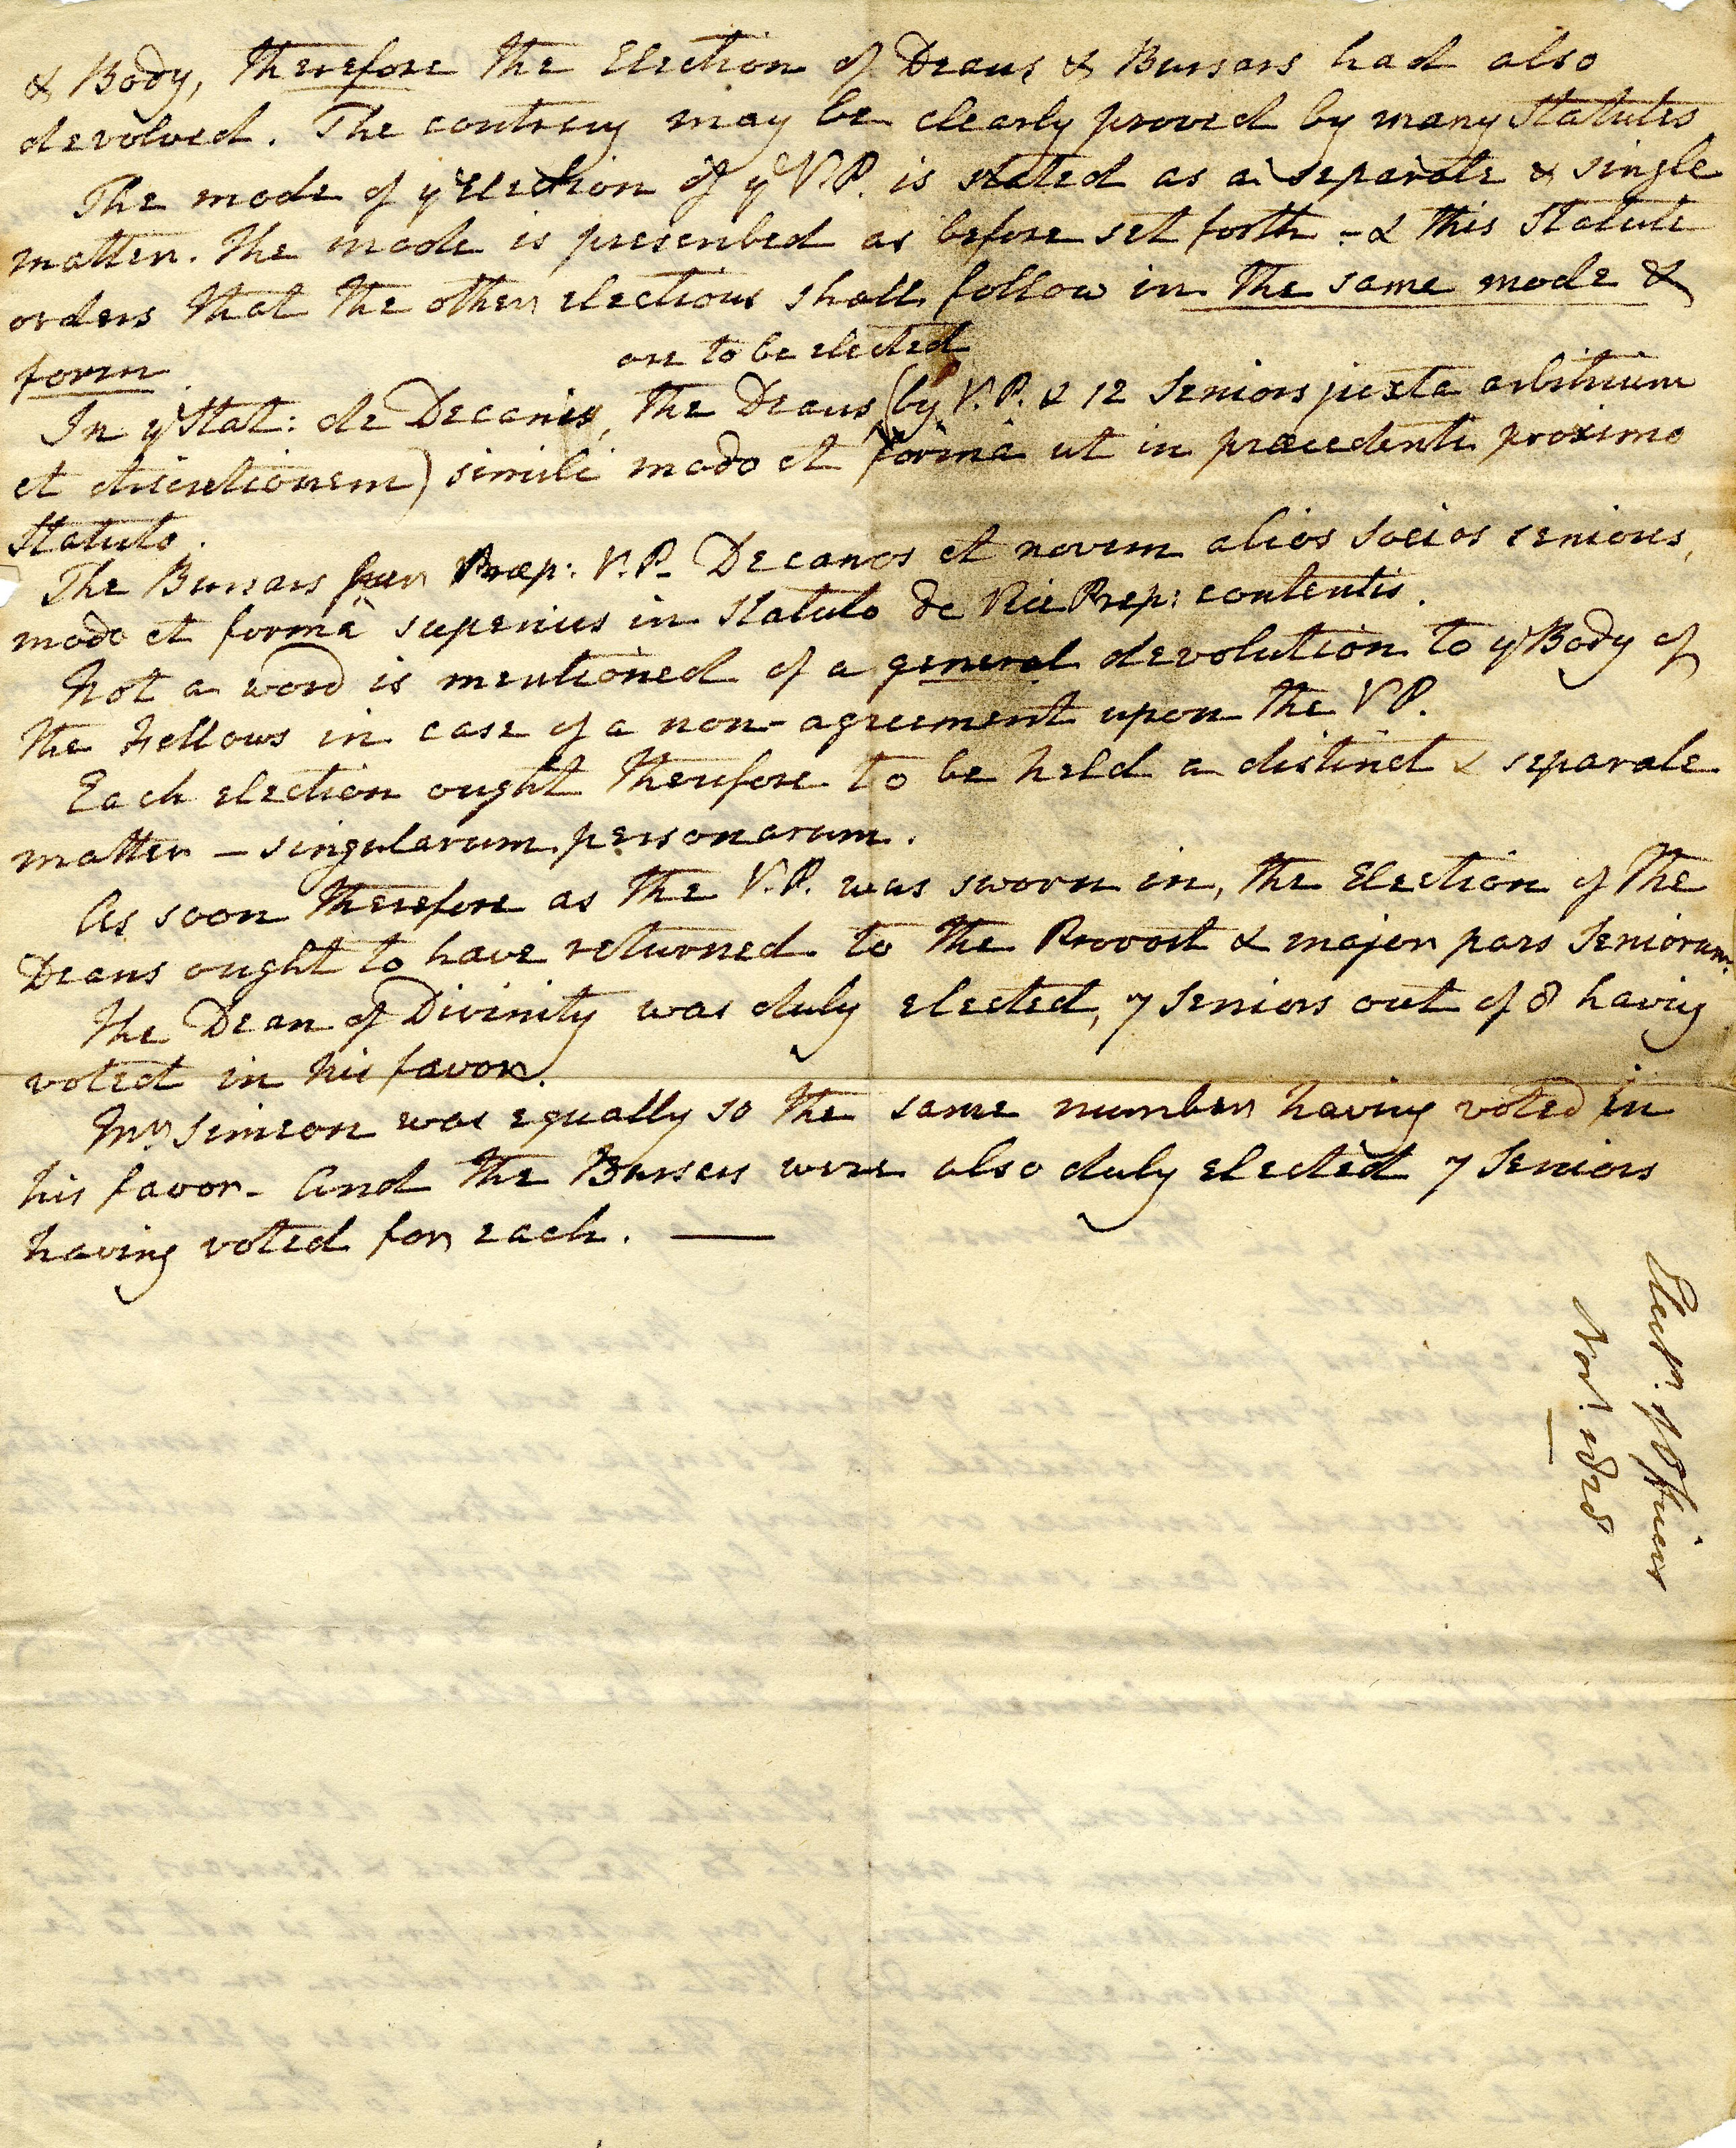 & Body, therefore the Election of Deans & Bursars had also
devolved. The contrary may be clearly proved by many Statutes
The mode of yᵉ Election of yᵉ V.P. is stated as a separate & single
matter. The mode is prescribed as before set forth - & this Statute
orders that the other elections shall follow in the same mode &
form
are to be elected
In yᵉ Stat: de Decanis, the Deans (by V.P. & 12 Seniors juxta arbitrium
et discretionem) simili modo et formâ ut in præcedenti proximo
Statuto.
The Bursars per Præp: V.P. Decanos et novem alios Socios seniores,
modo et formâ superius in Statuto de Vice Prep: contentis.
Not a word is mentioned of a general devolution to yᵉ Body of
the Fellows in case of a non-agreement upon the V P.
Each election ought therefore to be held a distinct & separate
matter - singularum personarum.
As soon therefore as the V.P. was sworn in, the Election of the
Deans ought to have returned to the Provost & major pars Seniorum.
The Dean of Divinity was duly elected, 7 Seniors out of 8 having
voted in his favor.
Mʳ Simeon was equally so the same number having voted in
his favor - And the Bursars were also duly elected 7 Seniors
having voted for each. —
Electn. of Officers
Novʳ. 1828